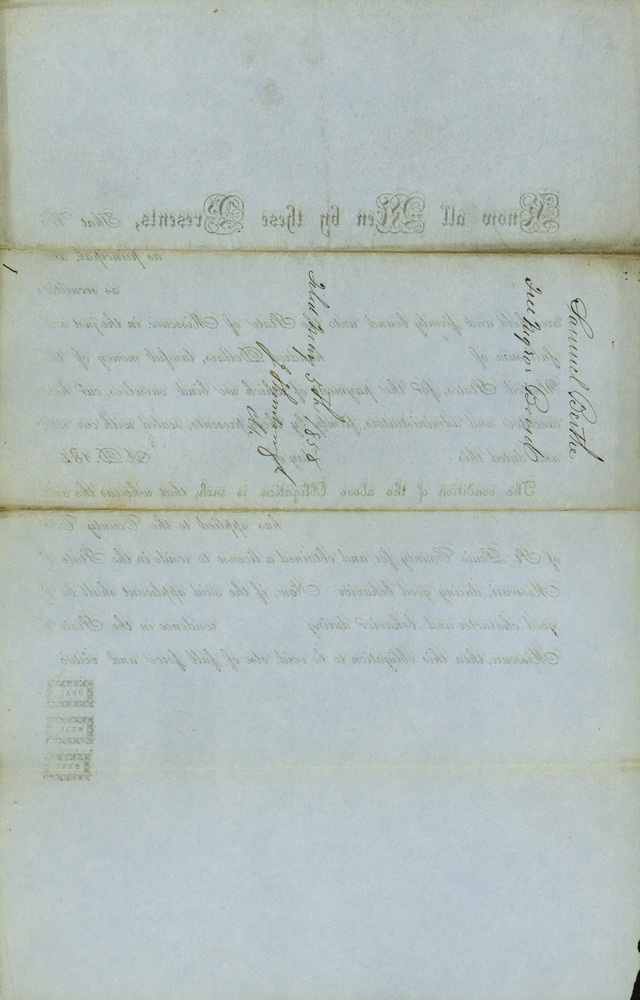 Samuel Berthe
Free Negros Bond
Filed May 5th 1858
Clk
Know all Men by these Presents, That We
as principal, and
as securities
are held and firmly bound unto the State of Missouri, in the just and
sum of Dollars, lawful money of the
United States, for the payment of which we bind ourselves, our heirs
and administrators, firmly by these presents, sealed with our
and dated this day of A. D. 18
The condition of the above Obligation is such, that whereas the said
has applied to the County Court
of St. Louis County for, and obtained a license to reside in the State of
Missouri, during good behavior. Now, if the said applicant shall be of
good character and behavior during residence in the State of
Missouri, then this obligation to be void, else of full force and virtue
SEAL
SEAL
SEAL